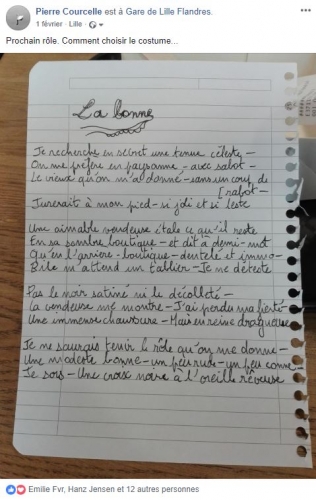 Pierre Courcelle est à Gare de Lille Flandres.
1 février · Lille ·
Prochain rôle. Comment choisir le costume...
La bonne
Je recherche en secret une tenue céleste –
On me préfère en paysanne – avec sabot –
Le vieux qu'on m'a donné – sans un coup de
[rabot –
Jurerait à mon pied – si joli et si leste
Une aimable vendeuse étale ce qu'il reste
En sa sombre boutique – et dit à demi-mot
Qu'en l'arrière-boutique – dentelé et immo-
Bile m'attend un tablier – Je me déteste
Pas le noir satiné ni le décolleté –
La vendeuse me montre – J'ai perdu ma fierté
Une immense chaussure – Mais en reine dragueuse
Je ne saurais tenir le rôle qu'on me donne –
Une modeste bonne – un peu rude – un peu conne –
Je sors – Une croix noire à l'oreille rêveuse
Emilie Fvr, Hanz Jensen et 12 autres personnes